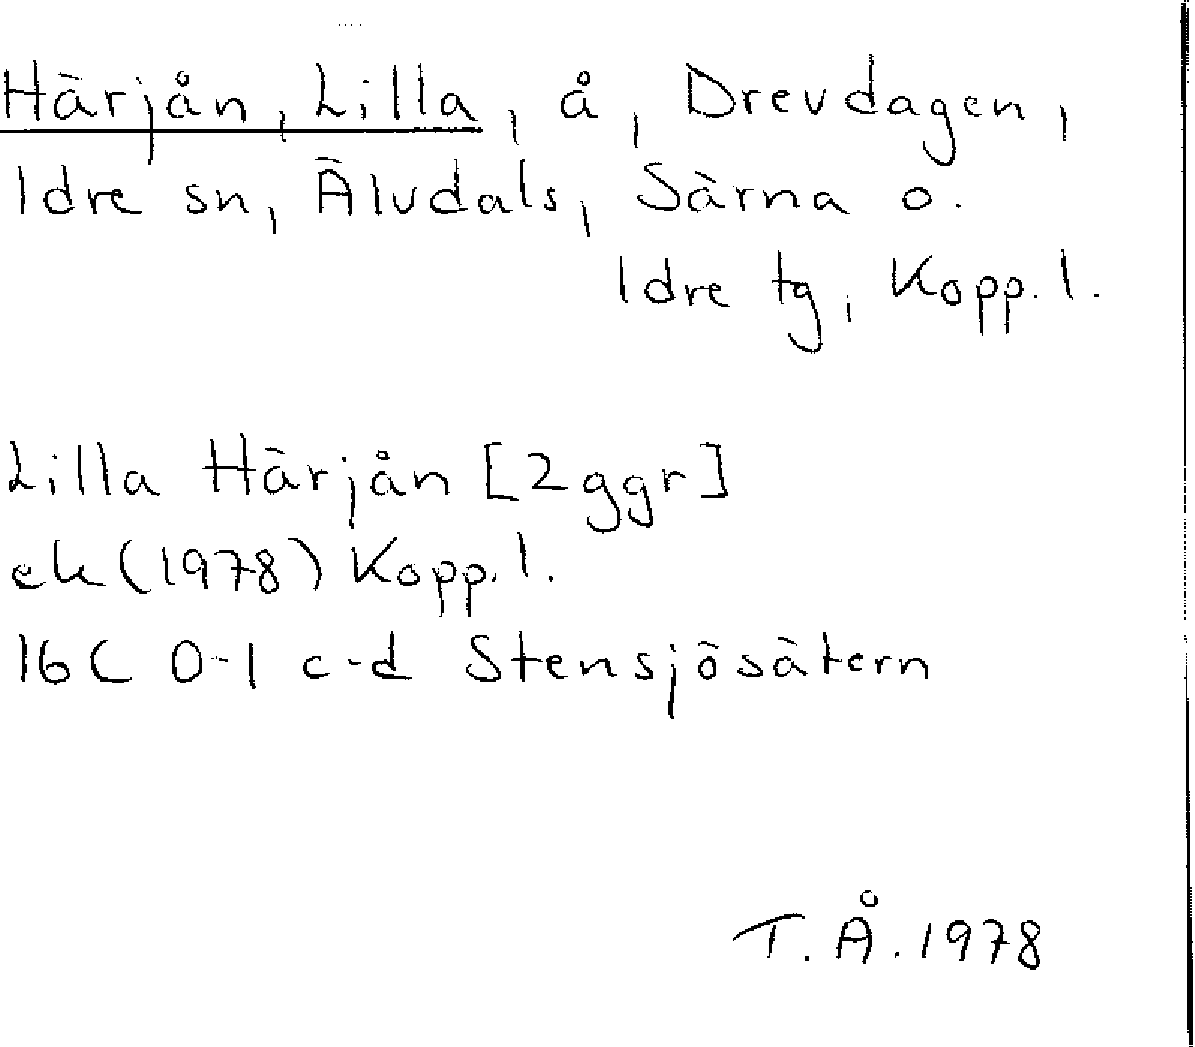 Härjån, Lilla, å, Drevdagen,
Idre sn, Älvdals, Särna o.
Idre tg, Kopp. l.
Lilla Härjån [2 ggr]
ek (1978) Kopp. l.
16C 0-1 c-d Stensjösätern
T. Å. 1978